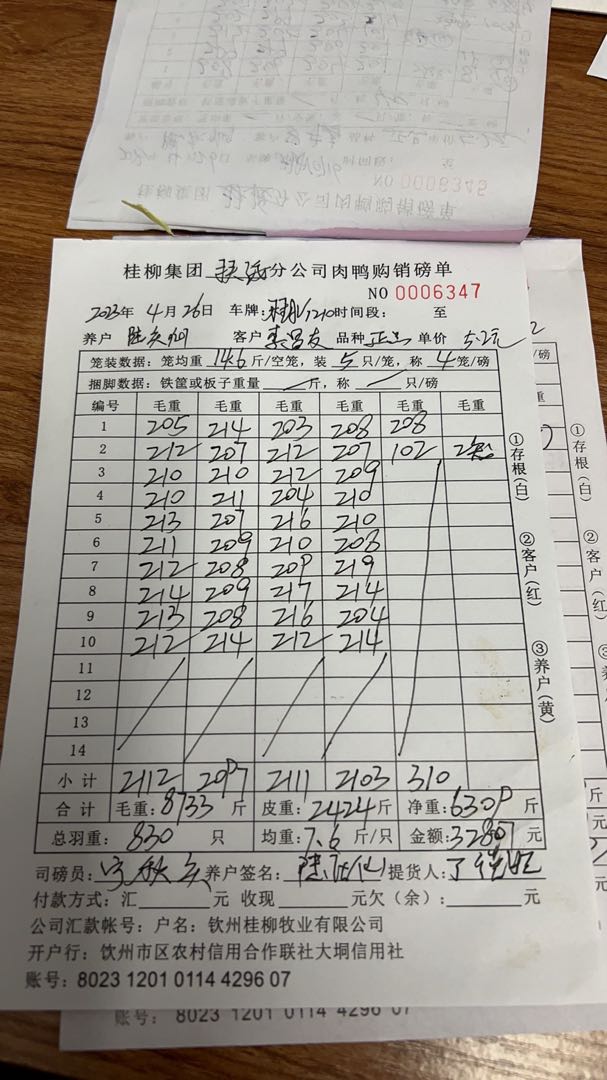 桂柳集团 分公司肉鸭购销磅单
NO 0006347
2023年 4月26日 车牌: 1210 时间段: 至
养户 客户 李昌友 品种 正 单价 5.2元
笼装数据:笼均重 14.6 斤/空笼,装 5 只/笼,称 4 笼/磅
捆脚数据:铁筐或板子重量 — 斤,称 — 只/磅
编号 毛重 毛重 毛重 毛重 毛重 毛重
1 205 214 203 208 208
2 212 207 212 207 102 2
3 210 210 212 209
4 210 211 204 210
5 213 207 216 210
6 211 209 210 208
7 212 208 209 219
8 214 209 217 214
9 213 208 216 204
10 212 214 212 214
11
12
13
14
小计 2112 2097 2111 2103 310
合计 毛重:8733斤 皮重:2424斤 净重:6309斤
总羽重: 830 只 均重:7.6斤/只 金额:32807元
司磅员: 养户签名: 提货人:
付款方式:汇 元 收现 元欠(余): 元
公司汇款帐号:户名:钦州桂柳牧业有限公司
开户行:钦州市区农村信用合作联社大垌信用社
账号:8023 1201 0114 4296 07
①存根(白) ②客户(红) ③养户(黄)
NO 0006345
①存根(白) ②客户(红)
账号: 8023 1201 0114 4296 07